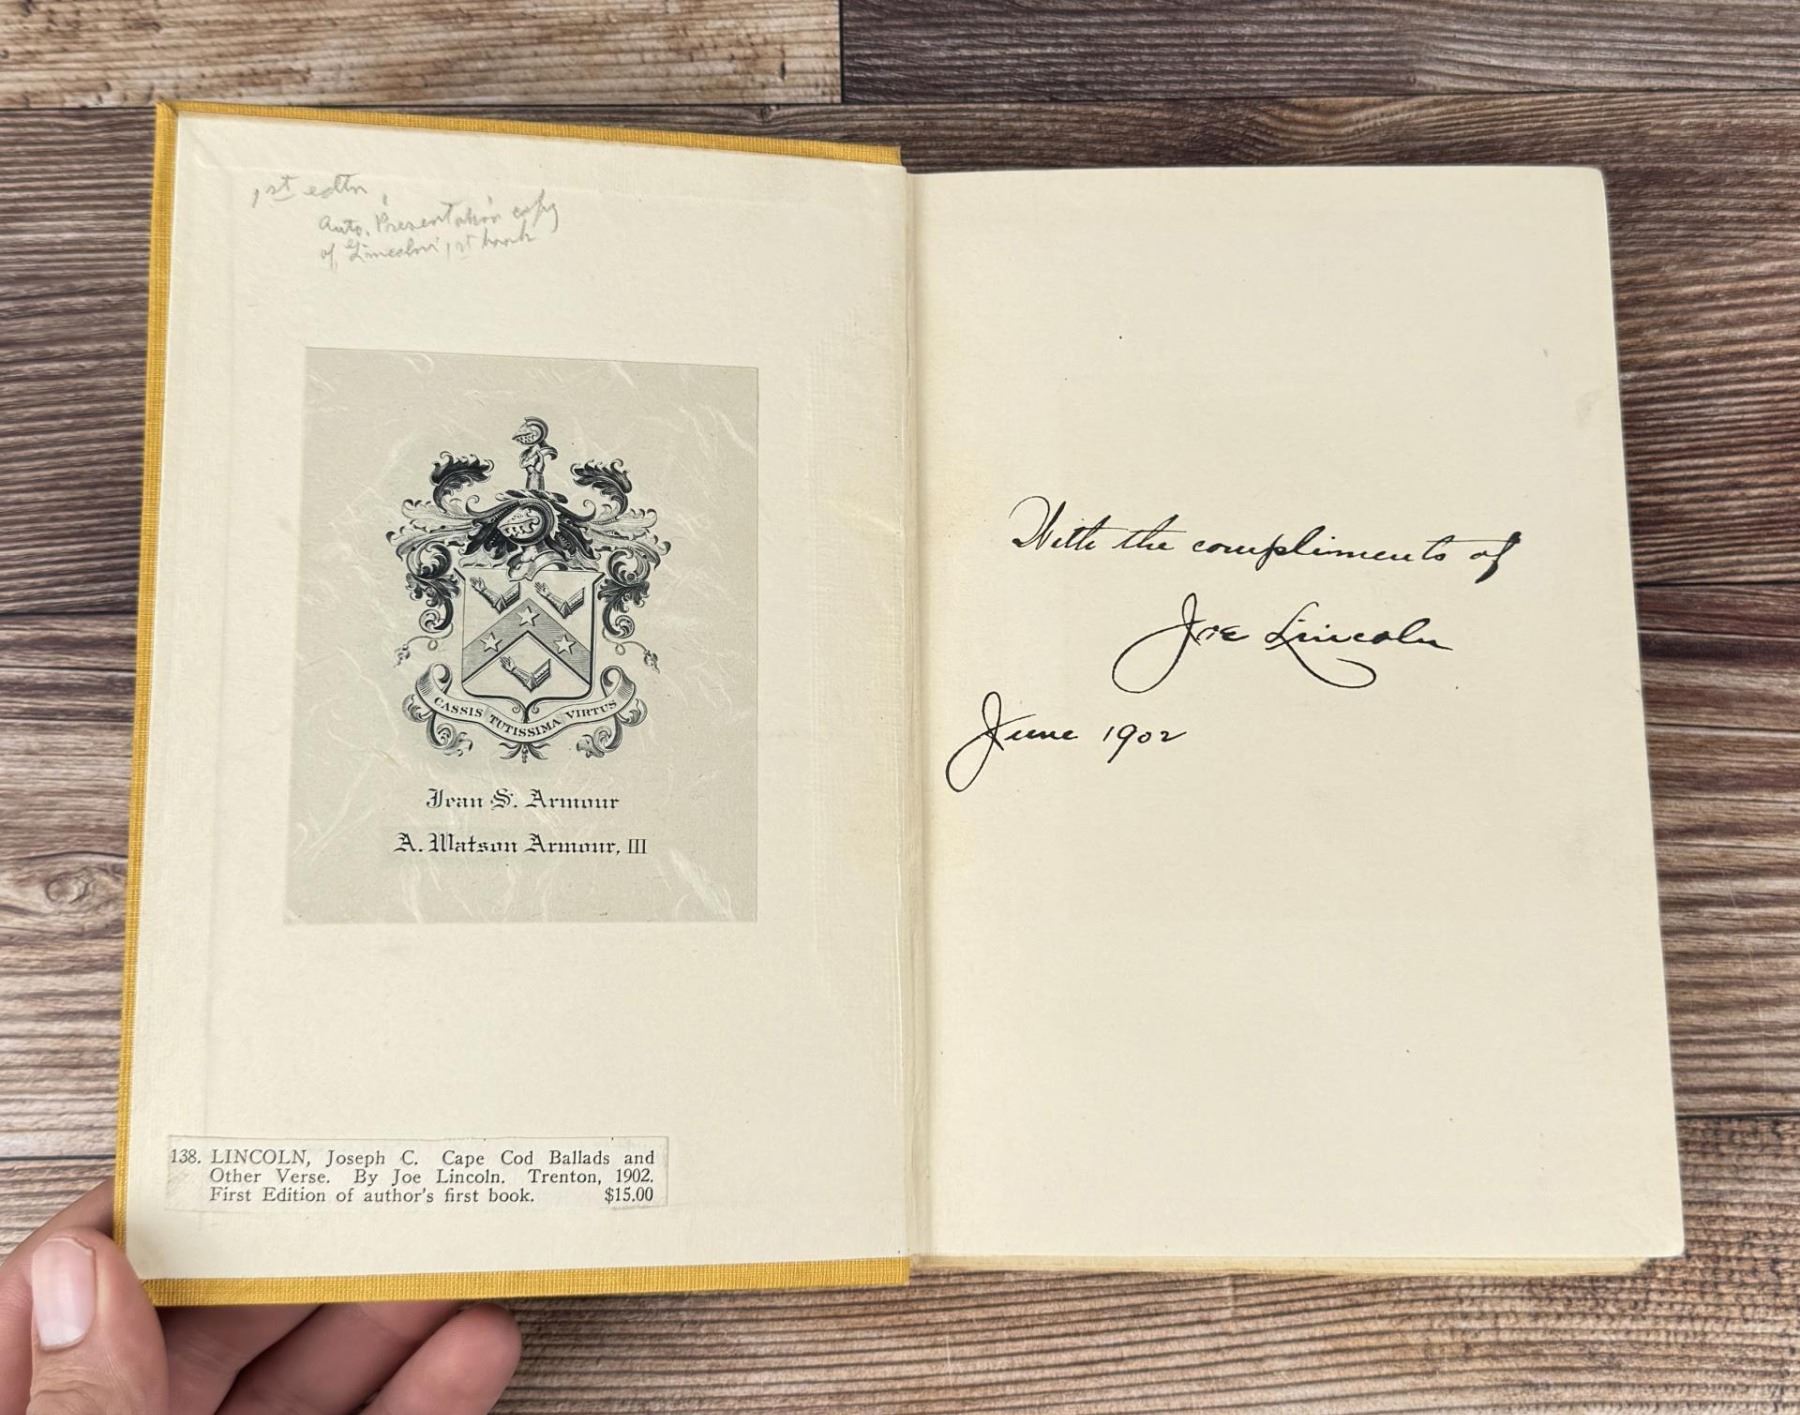 1st edtn,
Auto. Presentation copy
of Lincoln's 1st book
CASSIS TUTISSIMA VIRTUS
Jean S. Armour
A. Watson Armour, III
138. LINCOLN, Joseph C. Cape Cod Ballads and
Other Verse. By Joe Lincoln. Trenton, 1902.
First Edition of author's first book. $15.00
With the compliments of
Joe Lincoln
June 1902